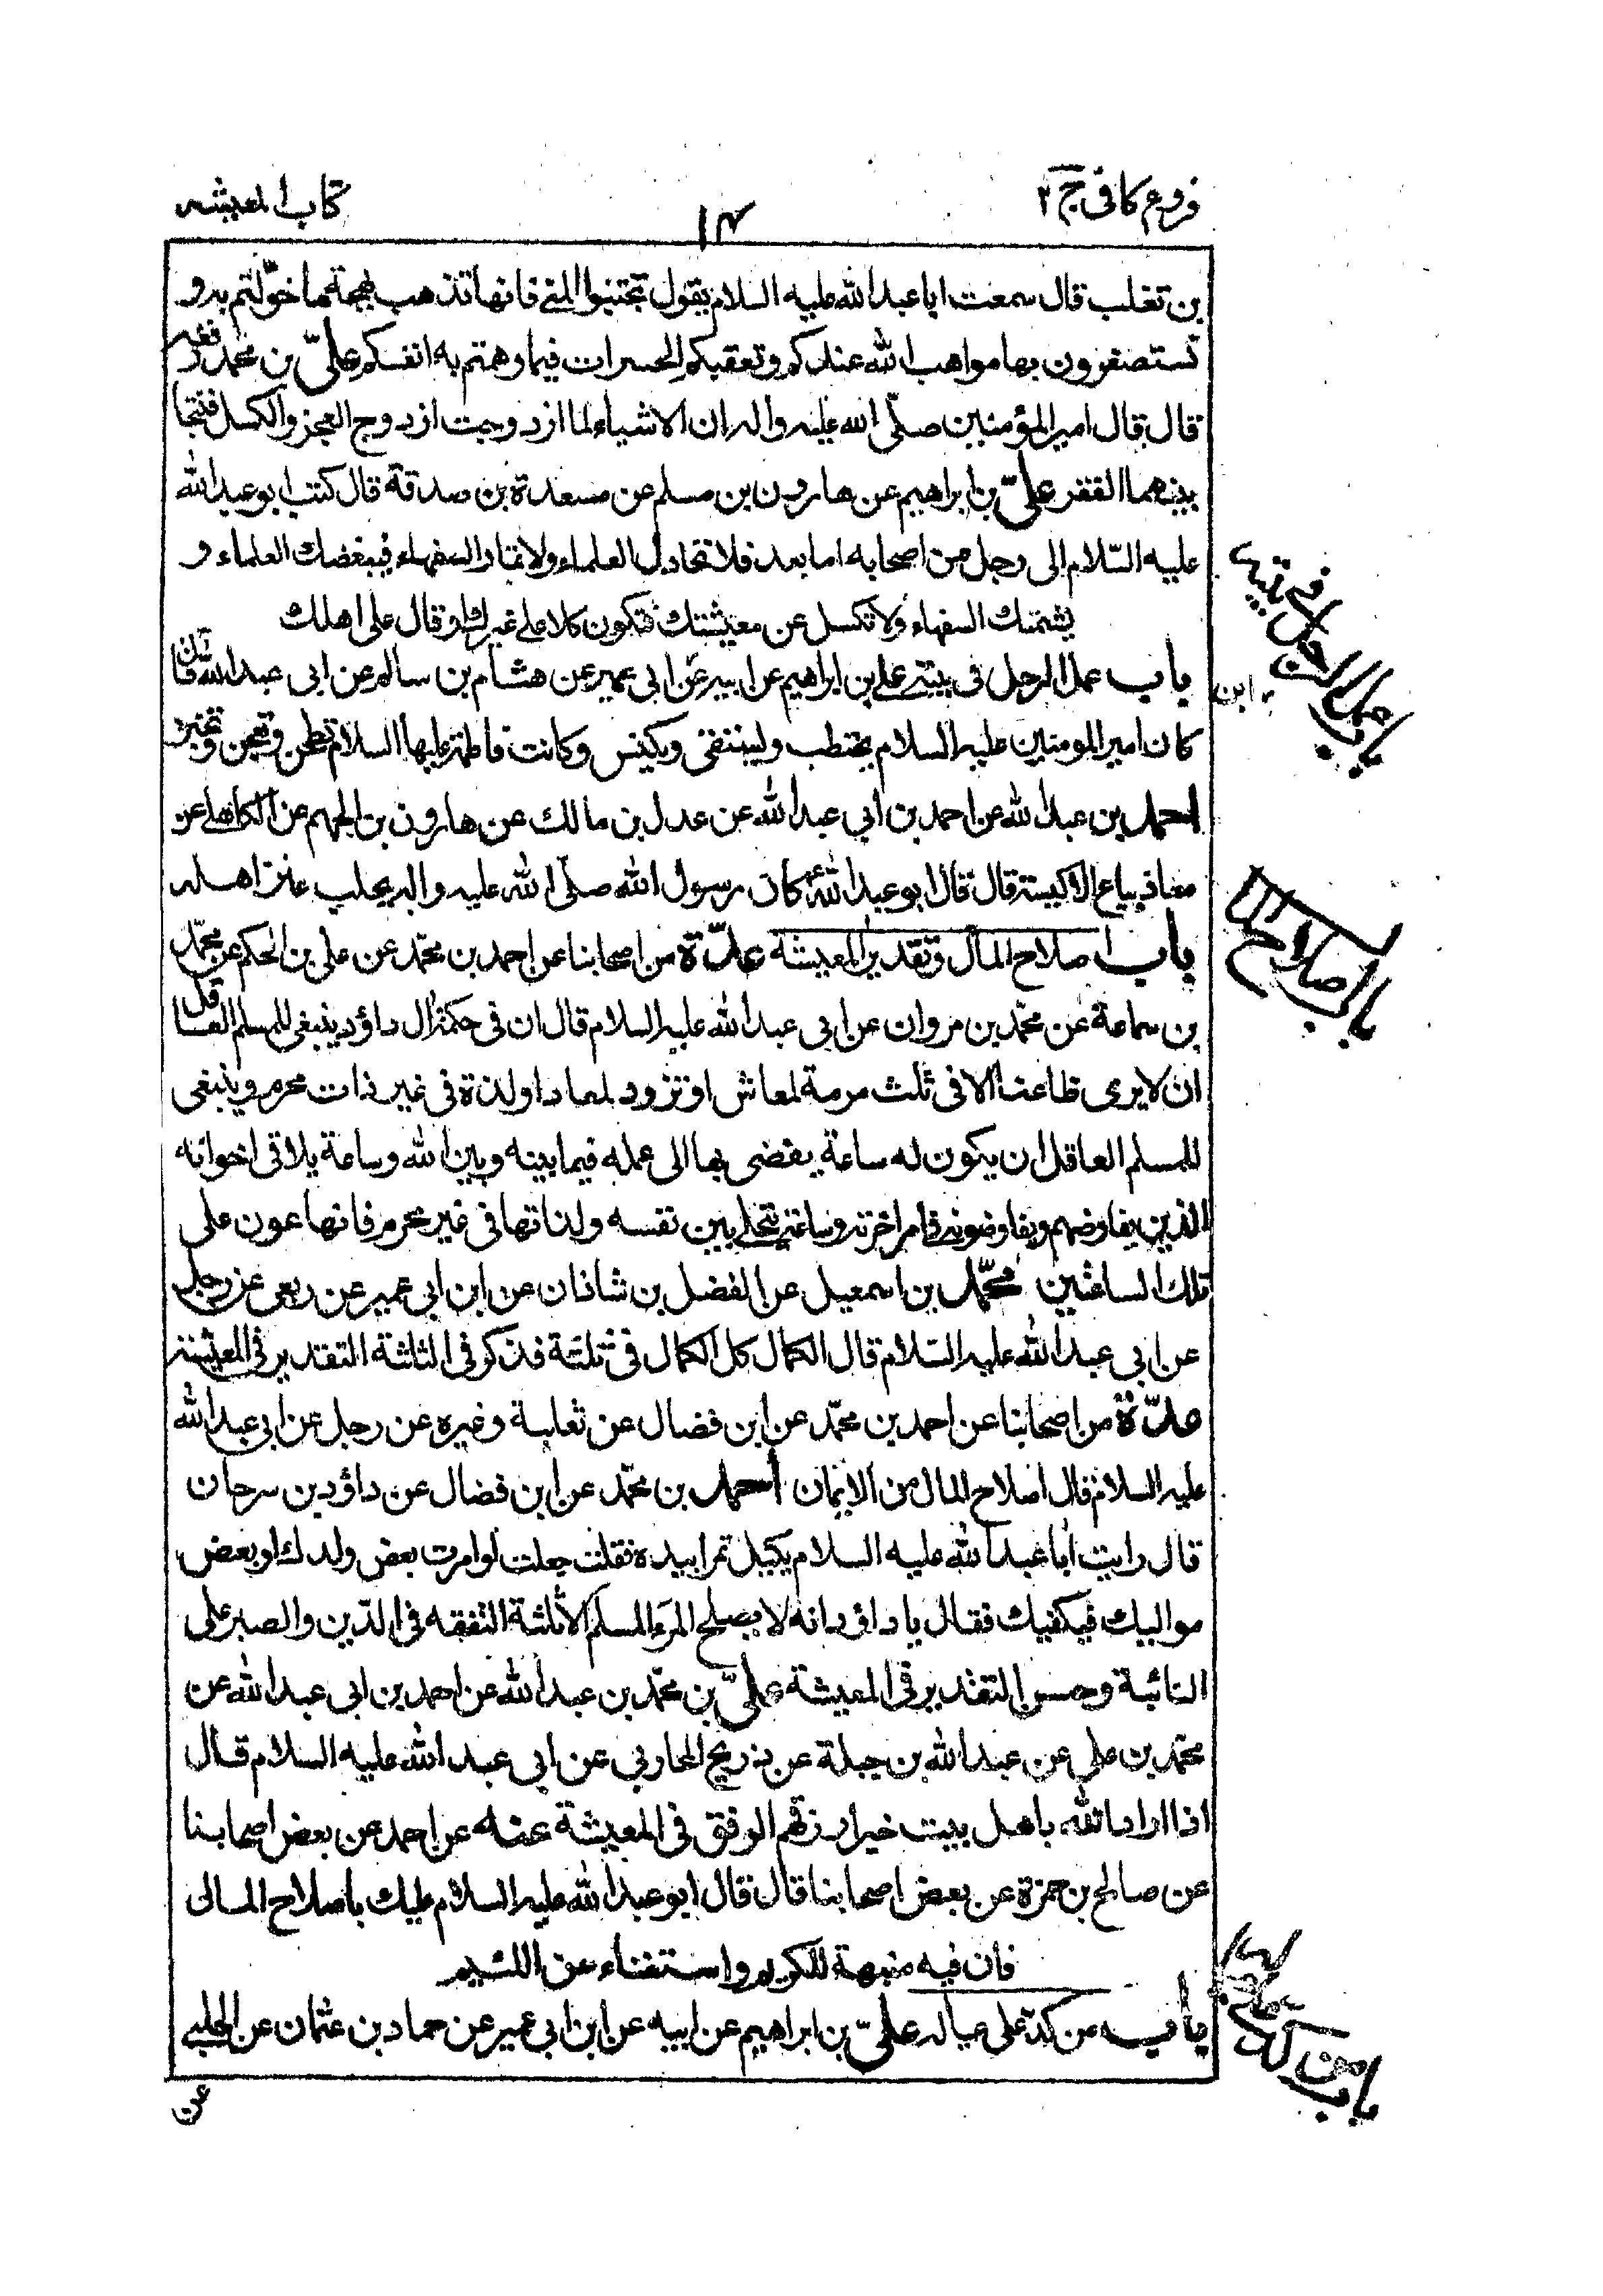 فروع كافى ج ٢
كتاب المعيشه
بن تغلب قال سمعت ابا عبد الله عليه السلام يقول تجتنبوا المنى فانها تذهب بهجة ما خوّلتم به و
تستصغرون بها مواهب الله عندكم و تعقبكم الحسرات فيما وهمتم به انفسكم علىّ بن محمد رفعه
قال قال امير المؤمنين صلّى الله عليه واله ان الاشياء لما ازدوجت ازدوج العجز والكسل فنتجا
بينهما الفقر علىّ بن ابراهيم عن هارون بن مسلم عن مسعدة بن صدقة قال كتب ابو عبد الله
عليه السّلام الى رجل من اصحابه اما بعد فلا تجادل العلماء ولا تمار السفهاء فيبغضك العلماء و
يشتمك السفهاء ولا تكسل عن معيشتك فتكون كلا على غيرك او قال على اهلك
باب عمل الرجل فى بيته على بن ابراهيم عن ابيه عن ابى عمير عن هشام بن سالم عن ابى عبد الله قال
ابن
كان امير المومنين عليه السلام يحتطب و يستقى و يكنس وكانت فاطمة عليها السلام تطحن وتعجن وتخبز
احمد بن عبد الله عن احمد بن ابي عبد الله عن عدل بن مالك عن هارون بن الجهم عن الكاهلى عن
معاذ بياع الاكيسة قال قال ابو عبد الله كان رسول الله صلّى الله عليه واله يحلب عنز اهله
باب اصلاح المال وتقدير المعيشة عدّة من اصحابنا عن احمد بن محمّد عن على بن الحكم عن محمّد
بن سماعة عن محمّد بن مروان عن ابي عبد الله عليه السلام قال ان فى حكمة ال داؤد ينبغى للمسلم العاقل
ان لا يرى ظاعنا الا فى ثلث مرمة لمعاش او تزود لمعاد او لذة فى غير ذات محرم وينبغى
للمسلم العاقل ان يكون له ساعة يفضى بها الى عمله فيما بينه وبين الله وساعة يلاقى اخوانه
الذين يفاوضهم ويفاوضونه فى امر اخرته وساعة يتخلى بين نفسه ولذاتها فى غير محرم فانها عون على
تلك الساعتين محمّد بن اسمعيل عن الفضل بن شاذان عن ابن ابى عمير عن ربعى عن رجل
عن ابي عبد الله عليه السّلام قال الكمال كل الكمال فى ثلثة فذكر فى الثلثة التقدير فى المعيشة
عدّة من اصحابنا عن احمد بن محمّد عن ابن فضال عن ثعلبة وغيره عن رجل عن ابي عبد الله
عليه السلام قال اصلاح المال من الايمان احمد بن محمّد عن ابن فضال عن داؤد بن سرحان
قال رايت ابا عبد الله عليه السلام يكيل تمرا بيده فقلت جعلت لو امرت بعض ولدك او بعض
مواليك فيكفيك فقال يا داؤد انه لا يصلح المرء المسلم الا ثلثة التفقه فى الدّين والصبر على
النائبة وحسن التقدير فى المعيشة علىّ بن محمّد بن عبد الله عن احمد بن ابى عبد الله عن
محمّد بن على عن عبد الله بن جبلة عن ذريح المحاربي عن ابى عبد الله عليه السلام قال
اذا اراد الله باهل بيت خيرا رزقهم الرفق فى المعيشة عنه عن احمد عن بعض اصحابنا
عن صالح بن حمزة عن بعض اصحابنا قال قال ابو عبد الله عليه السلام عليك باصلاح المال
فان فيه منبهة للكريم واستغناء عن اللئيم
باب من كدّ على عياله علىّ بن ابراهيم عن ابيه عن ابن ابى عمير عن حماد بن عثمان عن الحلبى
عن
باب عمل الرجل فى بيته
باب اصلاح المال
باب من كد على عياله